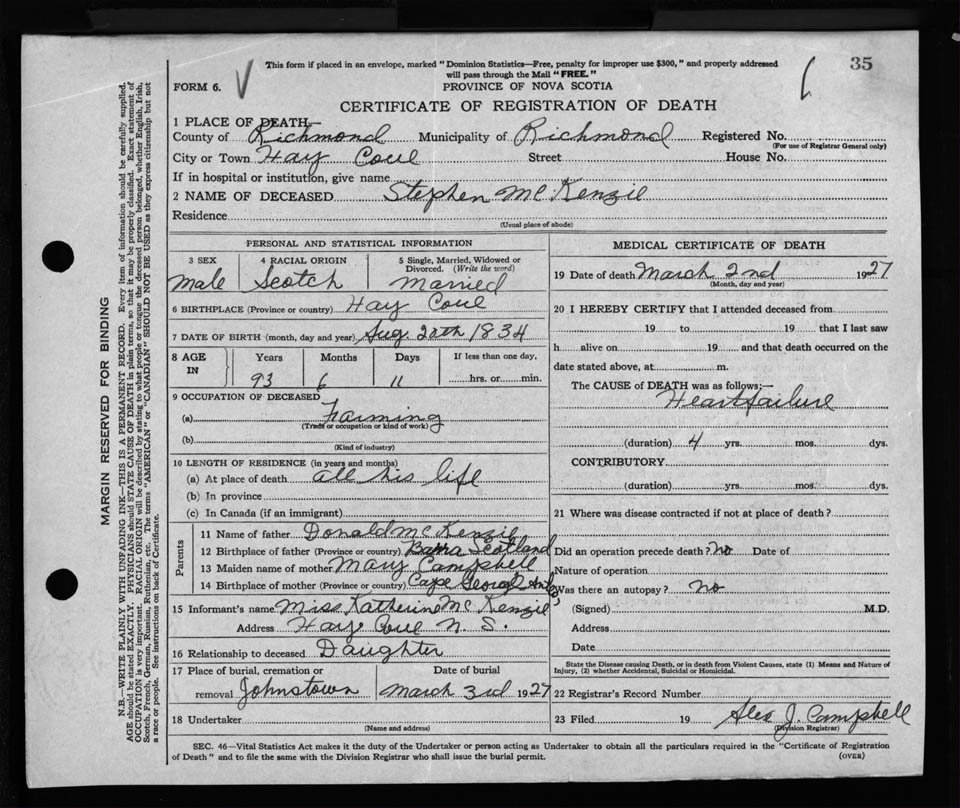 This form if placed in an envelope, marked "Dominion Statistics—Free, penalty for improper use $300," and properly addressed
will pass through the Mail "FREE."
35
FORM 6.
PROVINCE OF NOVA SCOTIA
CERTIFICATE OF REGISTRATION OF DEATH
1 PLACE OF DEATH
County of Richmond Municipality of Richmond Registered No.
(For use of Registrar General only)
City or Town Hay Coue Street House No.
If in hospital or institution, give name
2 NAME OF DECEASED Stephen McKenzie
Residence
(Usual place of abode)
PERSONAL AND STATISTICAL INFORMATION
3 SEX 4 RACIAL ORIGIN 5 Single, Married, Widowed or
Divorced. (Write the word)
Male Scotch Married
6 BIRTHPLACE (Province or country) Hay Coue
7 DATE OF BIRTH (month, day and year) Aug. 20th 1834
8 AGE Years Months Days If less than one day,
IN 93 6 11 hrs. or min.
9 OCCUPATION OF DECEASED
(a) Farming
(Trade or occupation or kind of work)
(b)
(Kind of industry)
10 LENGTH OF RESIDENCE (in years and months)
(a) At place of death all his life
(b) In province
(c) In Canada (if an immigrant)
Parents
11 Name of father Donald McKenzie
12 Birthplace of father (Province or country) Barra Scotland
13 Maiden name of mother Mary Campbell
14 Birthplace of mother (Province or country) Cape George
15 Informant's name Miss Katherine McKenzie
Address Hay Coue N. S.
16 Relationship to deceased Daughter
17 Place of burial, cremation or Date of burial
removal Johnstown March 3rd 1927
18 Undertaker
(Name and address)
MEDICAL CERTIFICATE OF DEATH
19 Date of death March 2nd 1927
(Month, day and year)
20 I HEREBY CERTIFY that I attended deceased from
19 to 19 that I last saw
h alive on 19 and that death occurred on the
date stated above, at m.
The CAUSE of DEATH was as follows:—
Heart failure
(duration) 4 yrs. mos. dys.
CONTRIBUTORY
(duration) yrs. mos. dys.
21 Where was disease contracted if not at place of death?
Did an operation precede death? no Date of
Nature of operation
Was there an autopsy? no
(Signed) M.D.
Address
Date
State the Disease causing Death, or in death from Violent Causes, state (1) Means and Nature of
Injury, (2) whether Accidental, Suicidal or Homicidal.
22 Registrar's Record Number
23 Filed 19 Alex J. Campbell
(Division Registrar)
SEC. 46—Vital Statistics Act makes it the duty of the Undertaker or person acting as Undertaker to obtain all the particulars required in the "Certificate of Registration
of Death" and to file the same with the Division Registrar who shall issue the burial permit.
(OVER)
MARGIN RESERVED FOR BINDING
N.B.—WRITE PLAINLY WITH UNFADING INK—THIS IS A PERMANENT RECORD. Every item of information should be carefully supplied.
AGE should be stated EXACTLY. PHYSICIANS should STATE CAUSE OF DEATH in plain terms, so that it may be properly classified. Exact statement of
OCCUPATION is very important. RACIAL ORIGIN will be described by stating to what people or tongue the deceased person belonged, whether English, Irish,
Scotch, French, German, Russian, Ruthenian, etc. The terms "AMERICAN" or "CANADIAN" SHOULD NOT BE USED as they express citizenship but not
a race or people. See instructions on back of Certificate.